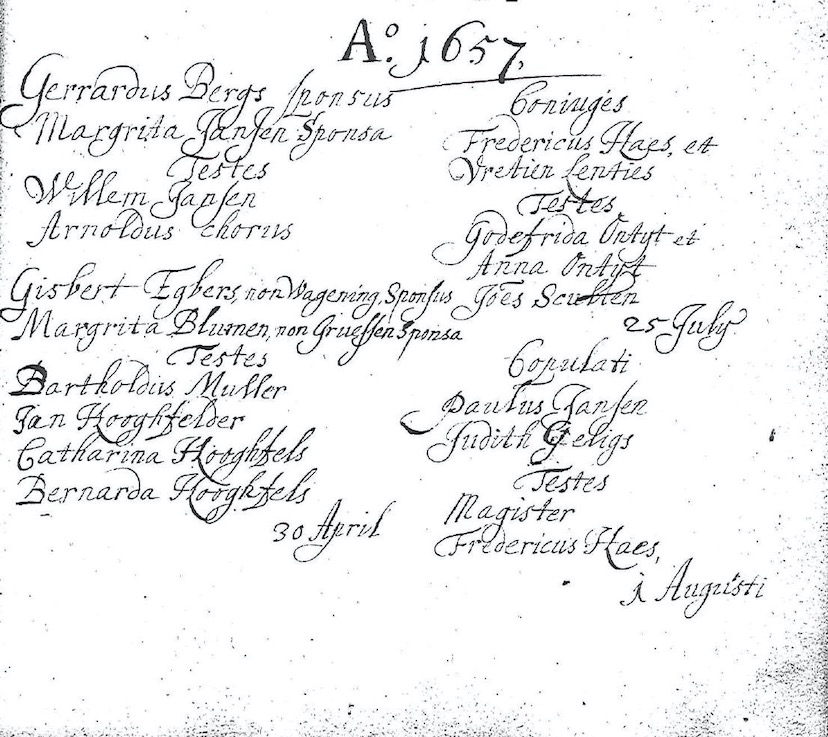 Aº. 1657,
Gerrardus Bergs sponsus
Margrita Jansen Sponsa
Testes
Willem Jansen
Arnoldus chorus
Gisbert Egbers, von Wagening, Sponsus
Margrita Blumen, von Gruessen Sponsa
Testes
Bartholdus Muller
Jan Hooghfelder
Catharina Hooghfels
Bernarda Hooghfels
30 April
Coniugės
Fredericus Haes, et
Vretien Lenties
Testes
Godefrida Ontyt et
Anna Ontyt
Joēs Sculten
25 July
Copulati
Paulus Jansen
Judith Geligs
Testes
Magister
Fredericus Haes,
1 Augusti